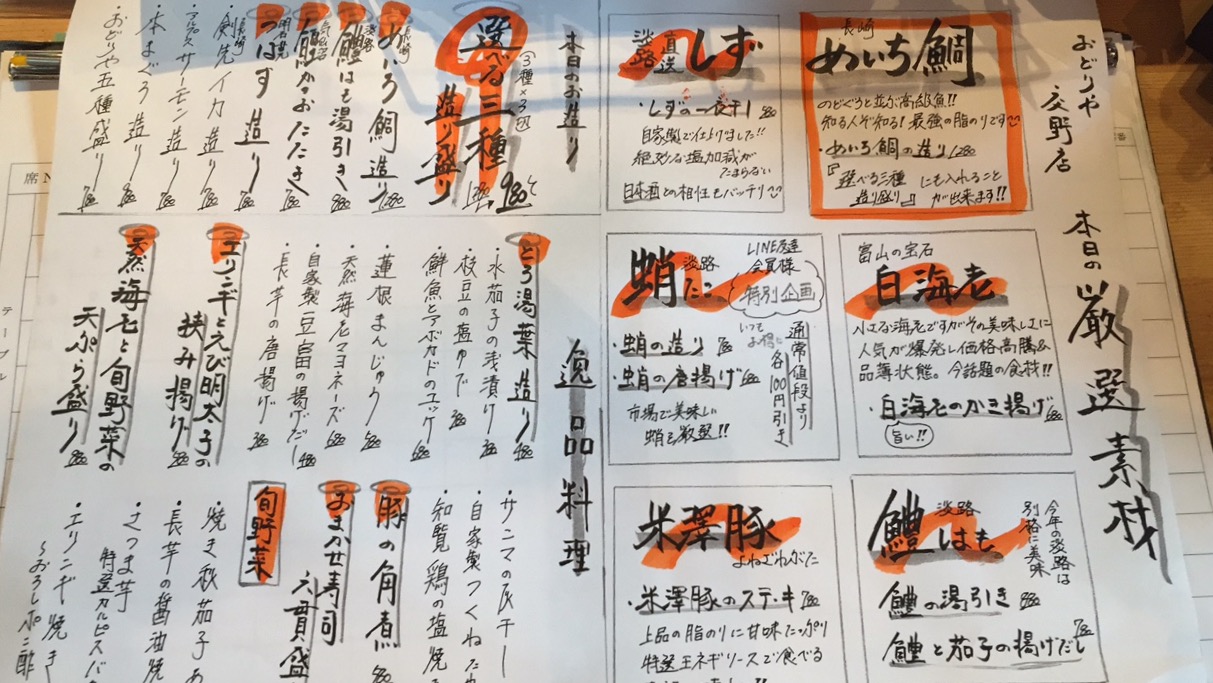 おどりや 交野店
本日の厳選素材
長崎
めいち鯛
のどぐろと並ぶ高級魚!!
知る人ぞ知る!最強の脂のりです
・めいち鯛の造り 1280
『選べる三種造り盛り』にも入れることが出来ます!!
淡路 直送 しず
・しずの一夜干し
自家製で仕上げました!!
絶妙な塩加減が
たまらない
日本酒との相性もバッチリ
富山の宝石
白海老
小さな海老ですがその美味しさに
人気が爆発し価格高騰&
品薄状態。今話題の食材!!
・白海老のかき揚げ 680
旨い!!
蛸 淡路 たこ
LINE友達
会員様
特別企画
・蛸の造り
・蛸の唐揚げ
いつもお得に
通常値段より
各100円引き
市場で美味しい
蛸を厳選!!
鱧 淡路 はも
今年の淡路は
別格に美味
鱧の湯引き 880
鱧と茄子の揚げだし 780
米澤豚
よねざわぶた
・米澤豚のステーキ 780
上品な脂のりに甘味たっぷり
特選玉ネギソースで食べる
本日のお造り
(3種×3切)
選べる三種 造り盛り
1280 980
長崎 めいち鯛 造り 1280
淡路 鱧はも湯引き 880
鰹かつおたたき 780
長崎 つばす 造り
・剣先イカ 造り
・アルプスサーモン 造り
・本まぐろ 造り
・おどりや五種盛り
逸品料理
・とろ湯葉 造り 480
・水茄子の浅漬け
・枝豆の塩ゆで
・鮮魚とアボカドのユッケ
・蓮根まんじゅう
・天然海老マヨネーズ 680
・自家製豆富の揚げだし 480
・長芋の唐揚げ
・エリンギとえび明太子の
挟み揚げ
・天然海老と旬野菜の
天ぷら盛り
・サンマの灰干し
・自家製つくねた
・知覧鶏の塩焼
・豚の角煮
・おまかせ寿司
六貫盛
旬野菜
・焼き秋茄子
・長芋の醤油焼
・さつま芋
特選カルピスバ
・エリンギ焼き
〜おろしポン酢